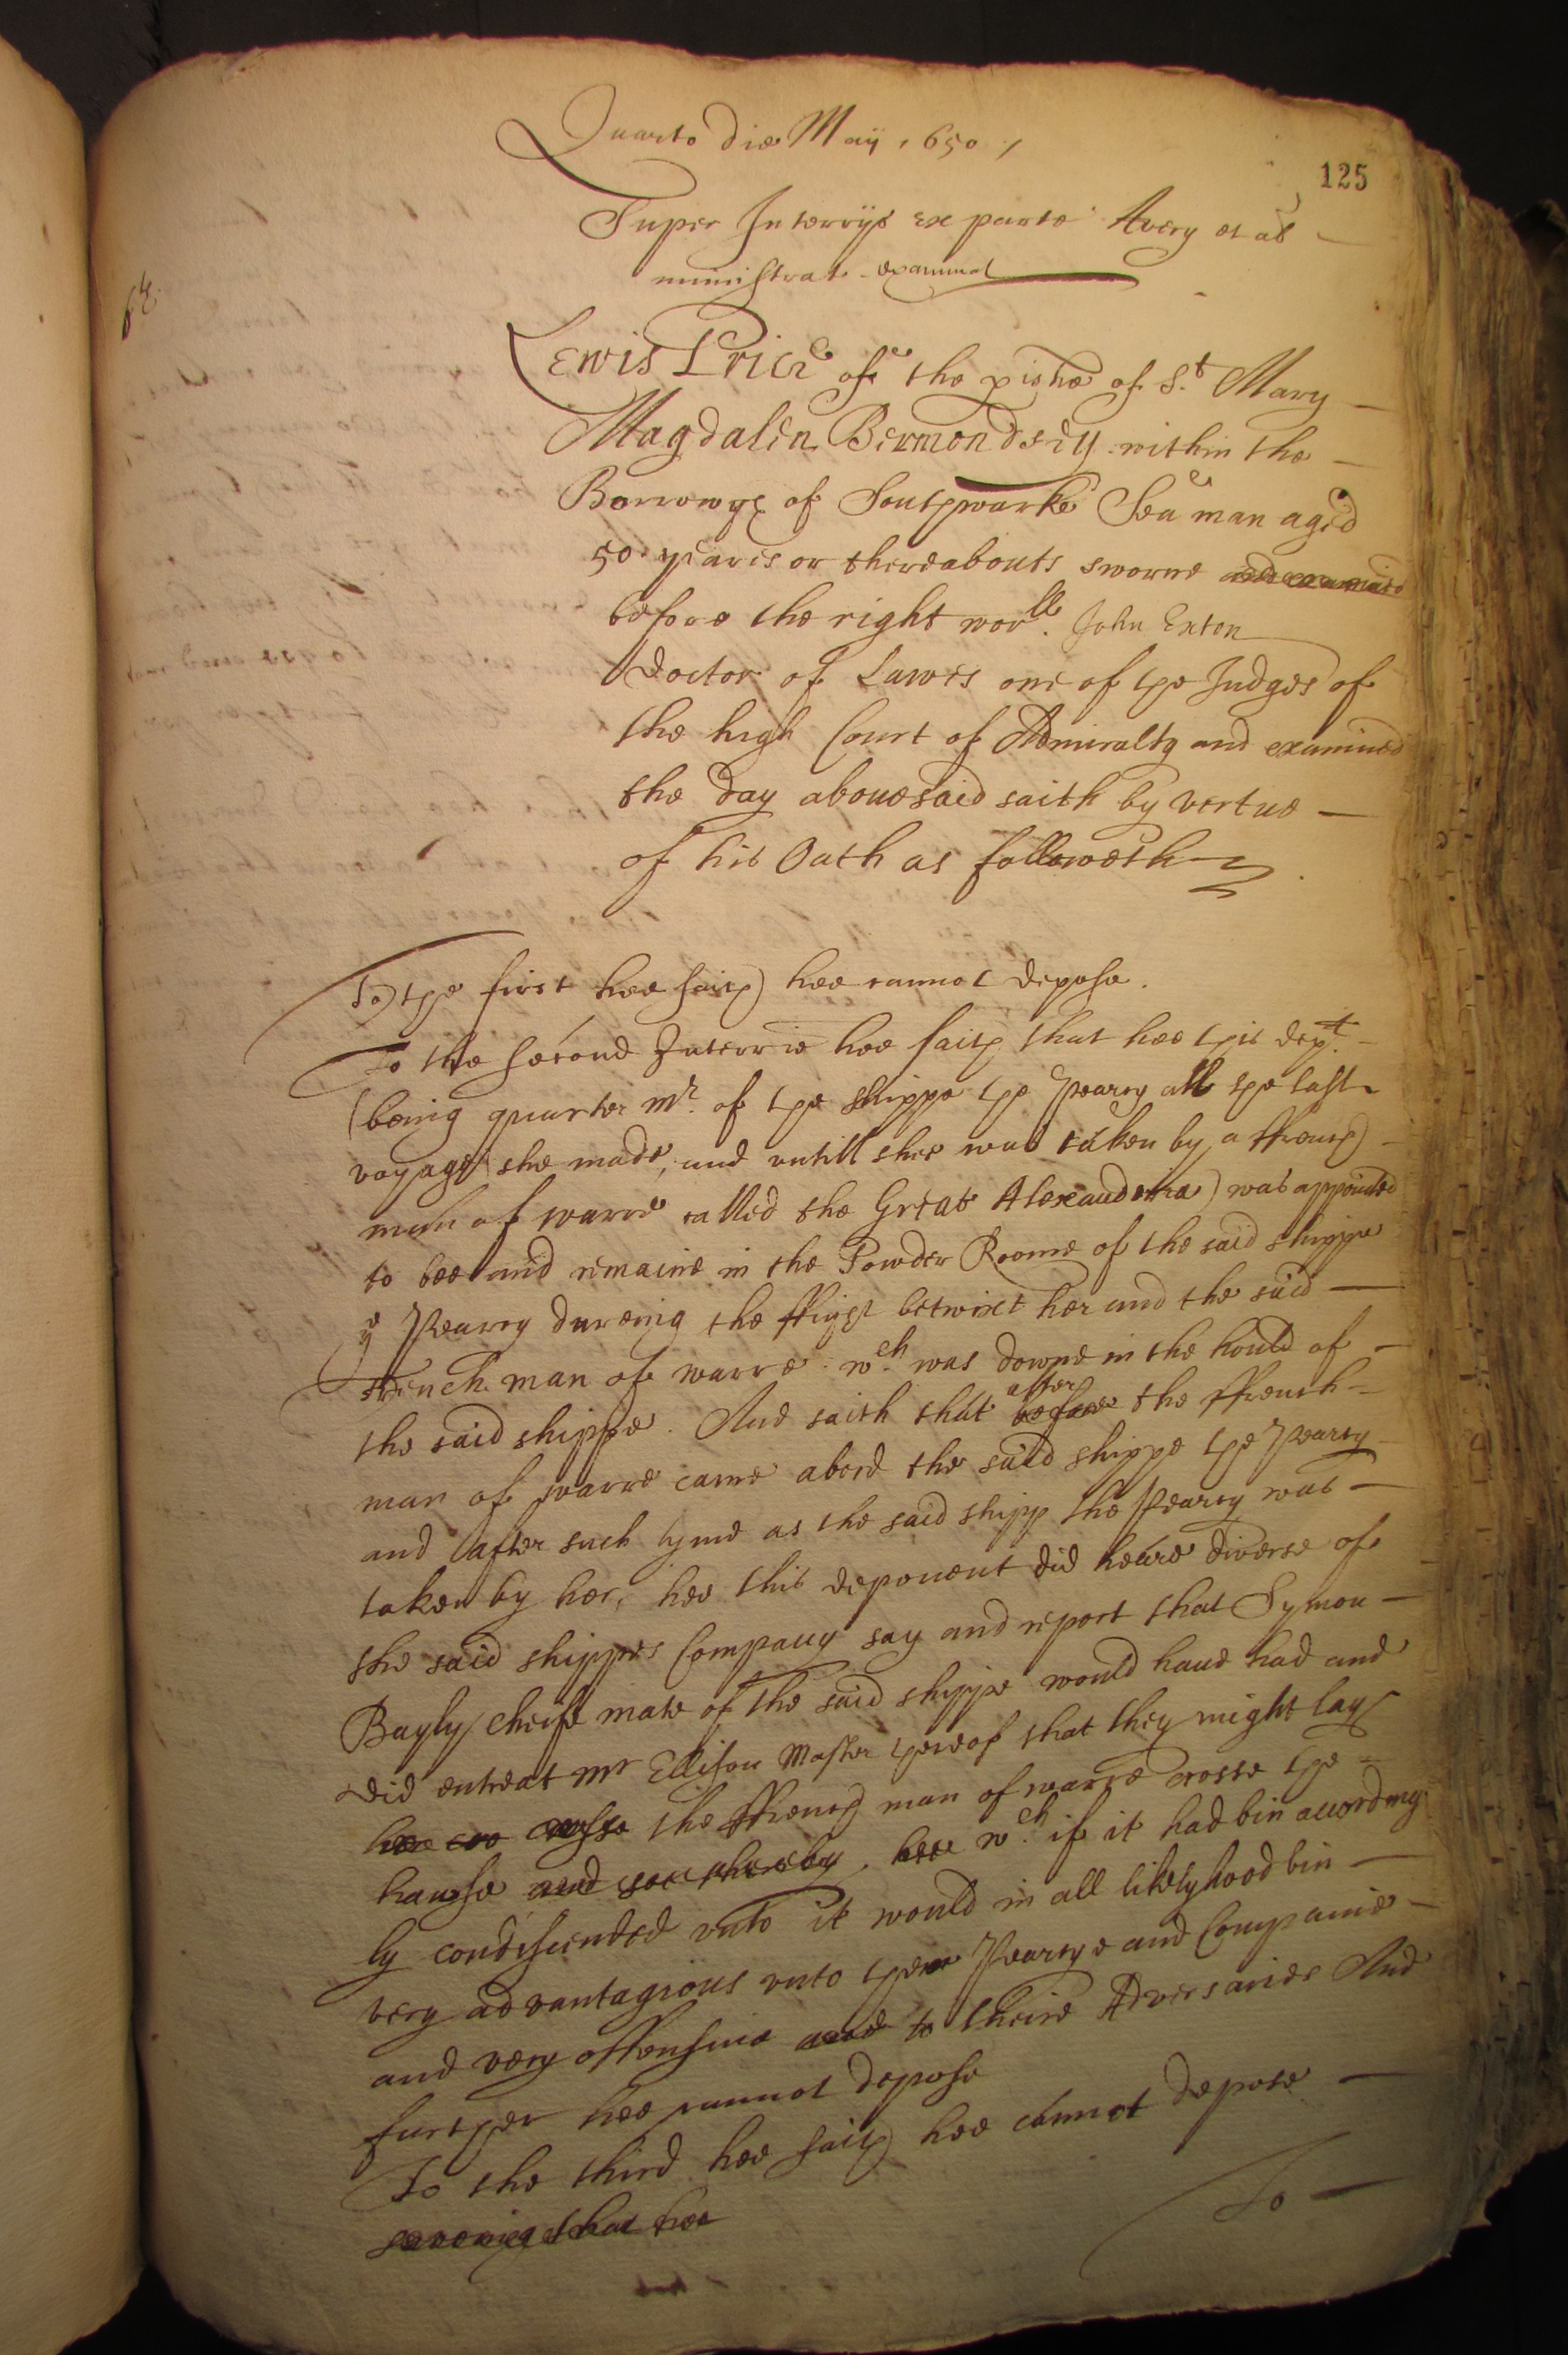 Quarto die Maij 1650 /
125
Super Interrijs ex parte Avery et al
ministrat examinat
Lewis Price of the pishe of St. Mary
Magdalen Bermondsey within the
Borrowgh of Southwarke Seaman aged
50 yeares or thereabouts sworne and examined
before the right worll. John Exton
Doctor of Lawes one of the Judges of
the high Court of Admiralty and examined
the day abouesaid saith by vertue
of his Oath as followeth
To the first hee saith hee cannot depose.
To the second Interrie hee saith that hee this dept.
(being quarter mr. of the shippe the Pearcy all the last
voyage she made, and vntill shee was taken by a ffrench
man of warre called the Great Alexandria) was appointed
to bee and remaine in the Powder Roome of the said shippe
ye Pearcy dureing the ffight betwixt her and the said
ffrench man of warre wch. was downe in the hould of
the said shippe. And saith that before after the ffrench
man of warre came abord the said shippe the Pearcy
and after such tyme as the said shipp the Pearcy was
taken by her, hee this deponent did heare diverse of
the said shippes Company say and report that Symon
Bayly cheife mate of the said shippe would haue had and
did entreat mr Ellison Master thereof that they might lay
the ffrench man of warre crosse the
haulse and soe thereby, wch. if it had bin according
ly condiscended vnto it would in all likelyhood bin
very advantagious vnto the Pearcye and Companie
and very offensiue and to theire Adversaries And
further hee cannot depose
To the third hee saith hee cannot depose
saveing that hee
To